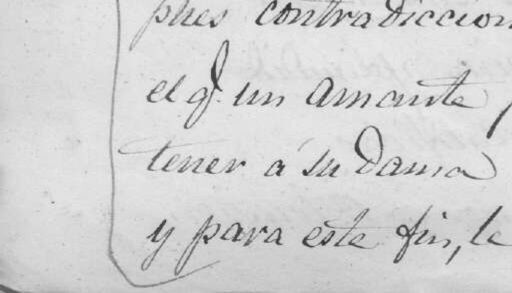 pues contradiccion
el q.e un amante
tener á su dama
y para este fin, le